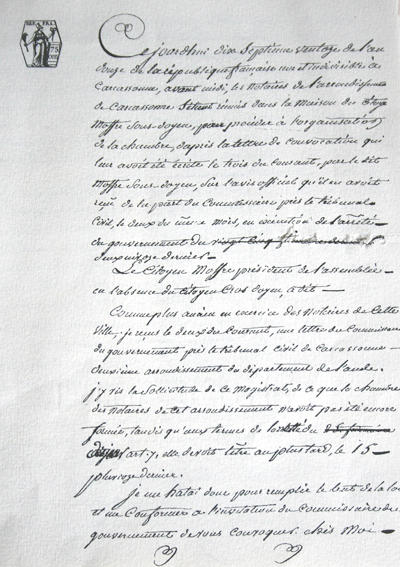 REP. FRA.
75
Ce jourdhui dix Septieme ventose de l'an
douze de la république française une et indivisible à
Carcassonne, avant midi, les Notaires de l'arrondissement
de Carcassonne réunis dans la maison du Citoyen
Moffre Sous-doyen, pour procéder à l'organisation
de la chambre, d'après la lettre de convocation qui
leur avoit été écrite le trois du Courant, par le dit
Moffre Sous-doyen, Sur l'avis officiel qu'il en avoit
reçu de la part du Commissaire près le tribunal
Civil, le deux du même mois, en exécution de l'arrêté
du gouvernement du vingt Cinq
deux nivose dernier.
Le Citoyen Moffre président de l'assemblée
en l'absence du Citoyen Cros doyen, a dit
Comme plus ancien en exercice des Notaires de Cette
Ville, je reçus le deux du Courant, une lettre du Commissaire
du gouvernement près le tribunal Civil de Carcassonne
deuxième arrondissement du département de l'aude.
j'y vis la Sollicitude de Ce Magistrat, de ce que la chambre
des Notaires de Cet arrondissement n'avoit pas été encore
formée, tandis qu'aux termes de l'arrêté du
art. 7, elle devoit l'être au plus tard, le 15
pluviose dernier.
je me hatai donc pour remplir le but de la loi
et me Conformer à l'invitation du Commissaire du
gouvernement de vous Convoquer chés Moi